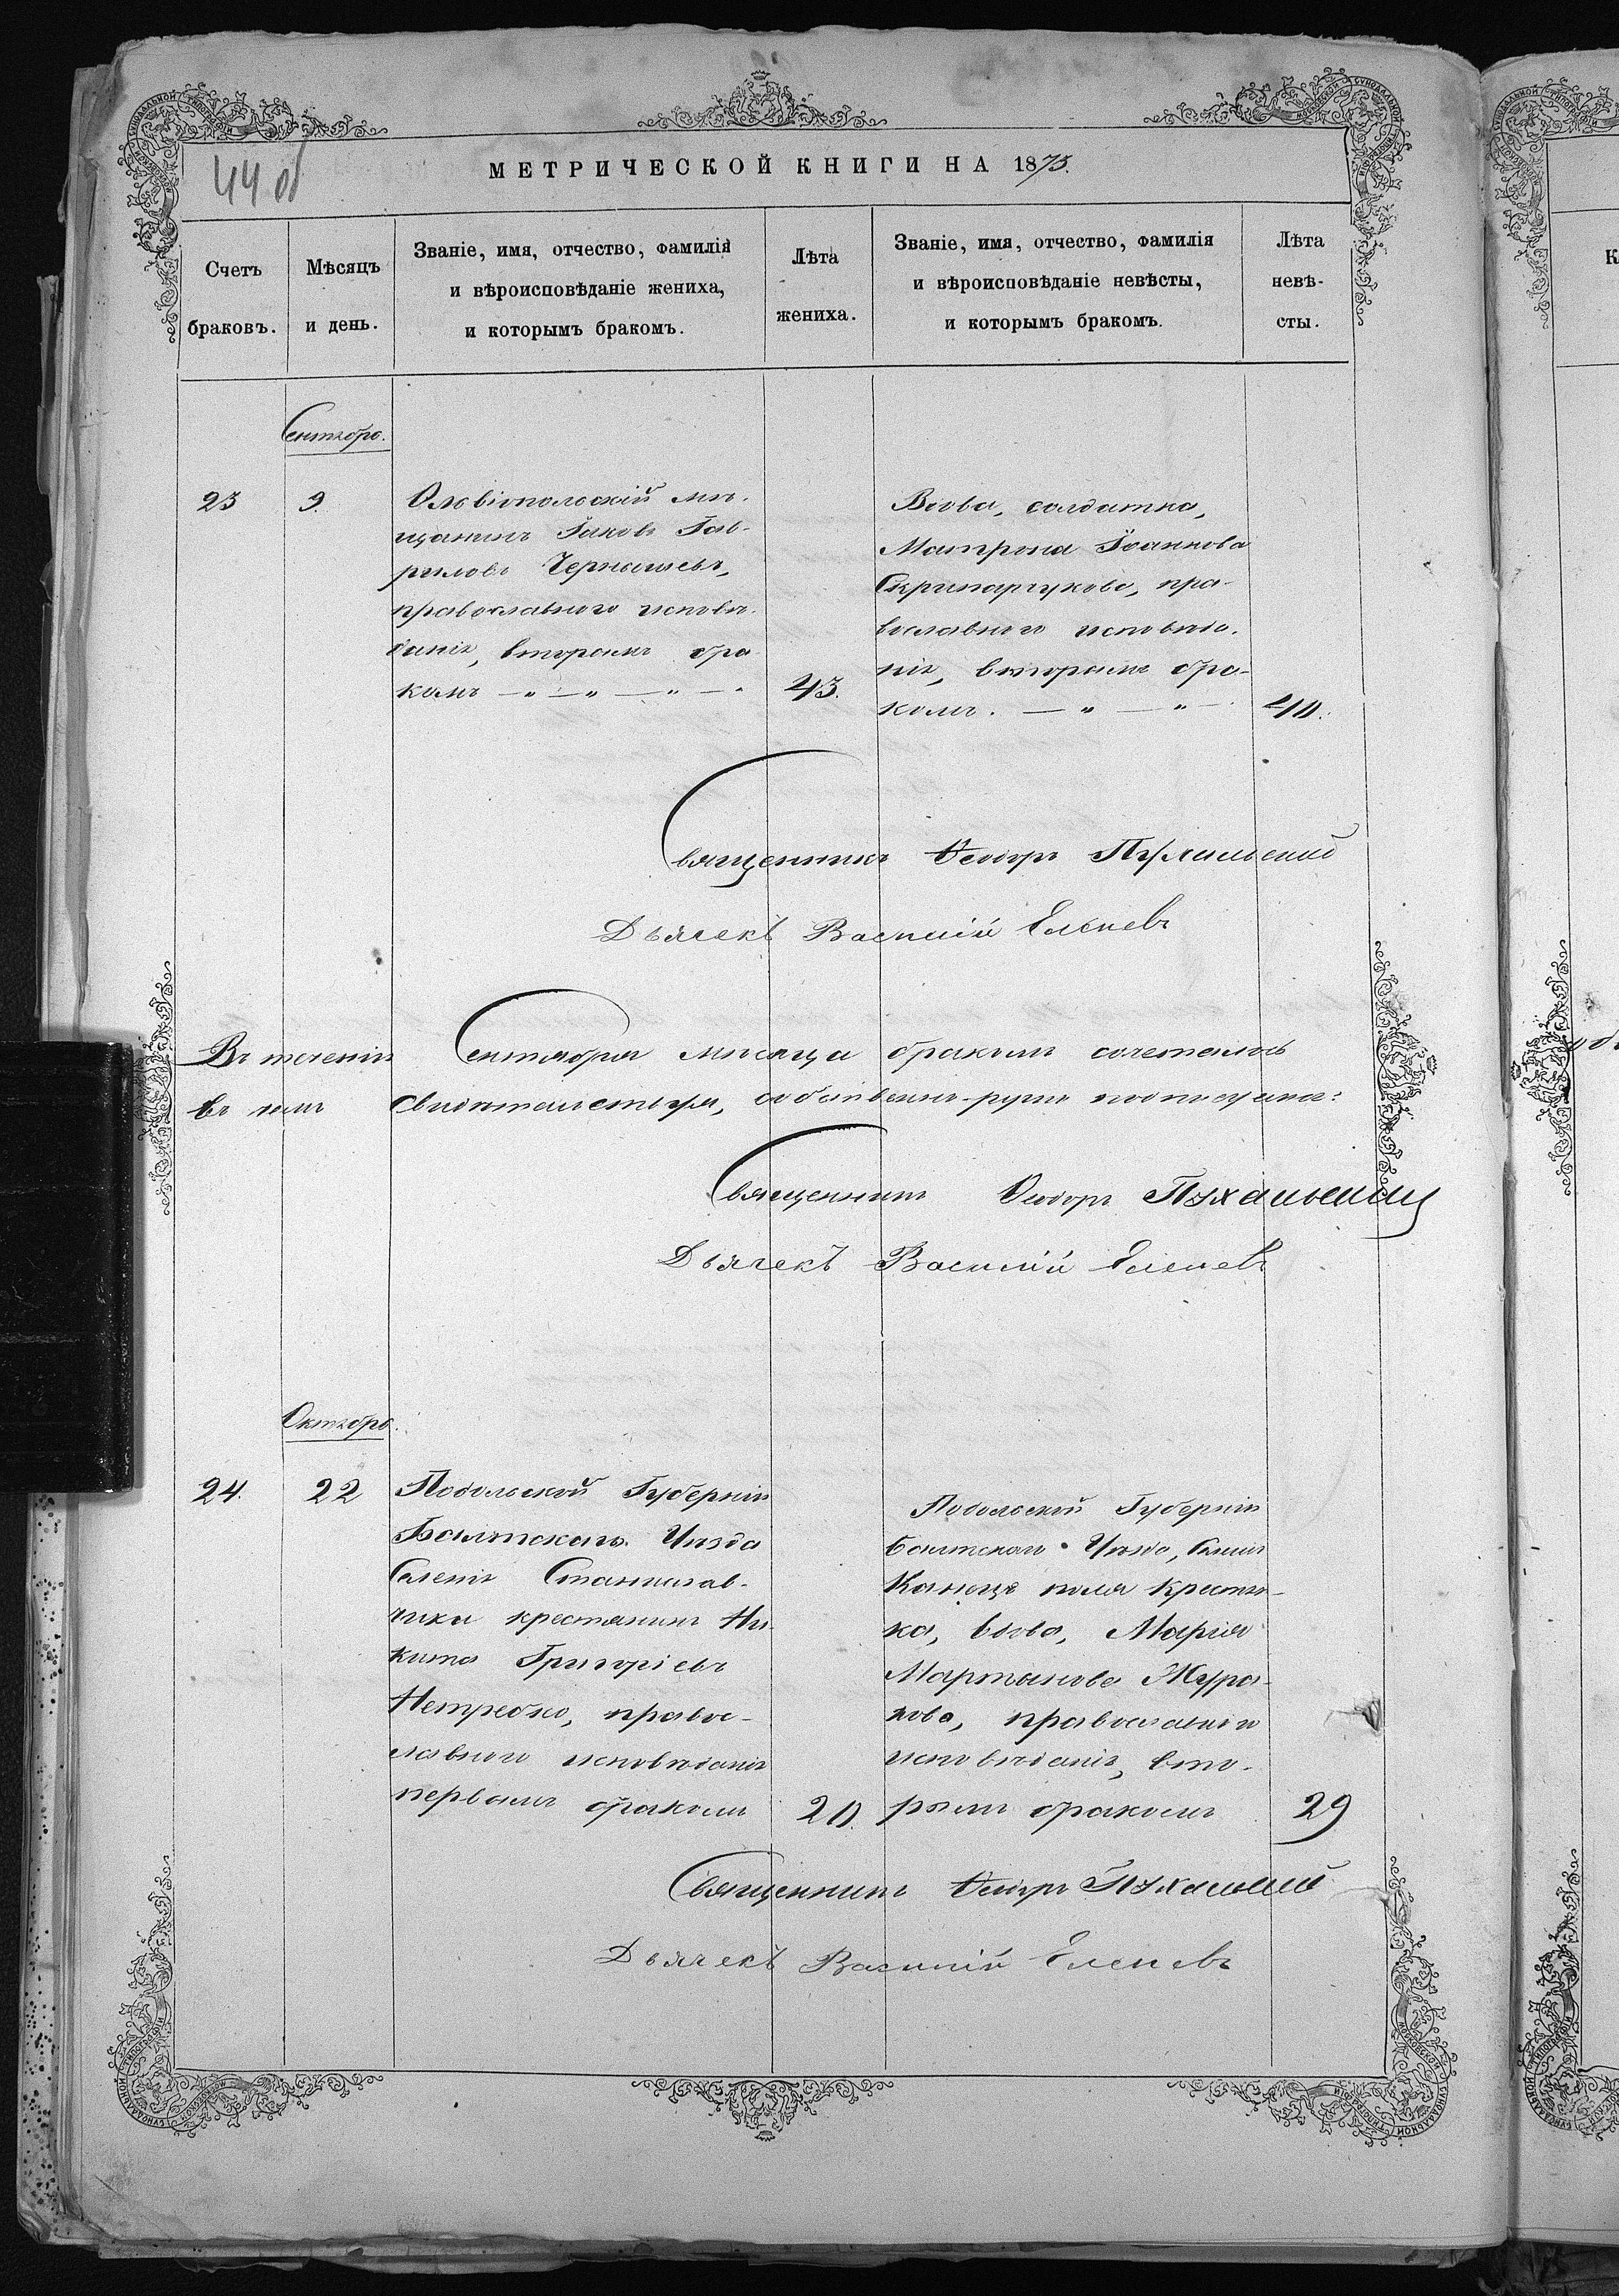 44 об
МЕТРИЧЕСКОЙ КНИГИ НА 1873.
Счетъ браковъ.
Мѣсяцъ и день.
Званіе, имя, отчество, фамилія
и вѣроисповѣданіе жениха,
и которымъ бракомъ.
Лѣта
жениха.
Званіе, имя, отчество, фамилія
и вѣроисповѣданіе невѣсты,
и которымъ бракомъ.
Лѣта
невѣ-
сты.
Сентябрь.
23
9.
Ольвіопольскій мѣ-
щанинъ Іаковъ Гав-
риловъ Чернышевъ,
православнаго исповѣ-
данія, вторымъ бра
комъ — „ — „ — „ — „
43.
Вдова, солдатка,
Матрона Іоаннова
Скрипарчукова, пра-
вославнаго исповѣда-
нія, вторымъ бра-
комъ. — „ — „ —
40.
Священникъ Ѳеодоръ Пухальскій
Дьячекъ Василій Еленевъ
Въ теченіи Сентября мѣсяца бракомъ сочеталось
въ чемъ свидѣтельствуя, собственно-ручно подписуемся:
Священникъ Ѳеодоръ Пухальскій
Дьячекъ Василій Еленевъ
Октябрь.
24.
22
Подольской Губерніи
Балтскаго Уѣзда
Селенія Станислав-
чика крестянинъ Ни
кита Григоріевъ
Нетребко, правос-
лавнаго исповѣданія
первымъ бракомъ
20.
Подольской Губерніи
Балтскаго Уѣзда, Селенія
поля крестян-
ка, вдова, Марія
Мартынова Жура-
кова, православнаго
исповѣданія, вто-
рымъ бракомъ
29
Священникъ Ѳеодоръ Пухальскій
Дьячекъ Василій Еленевъ